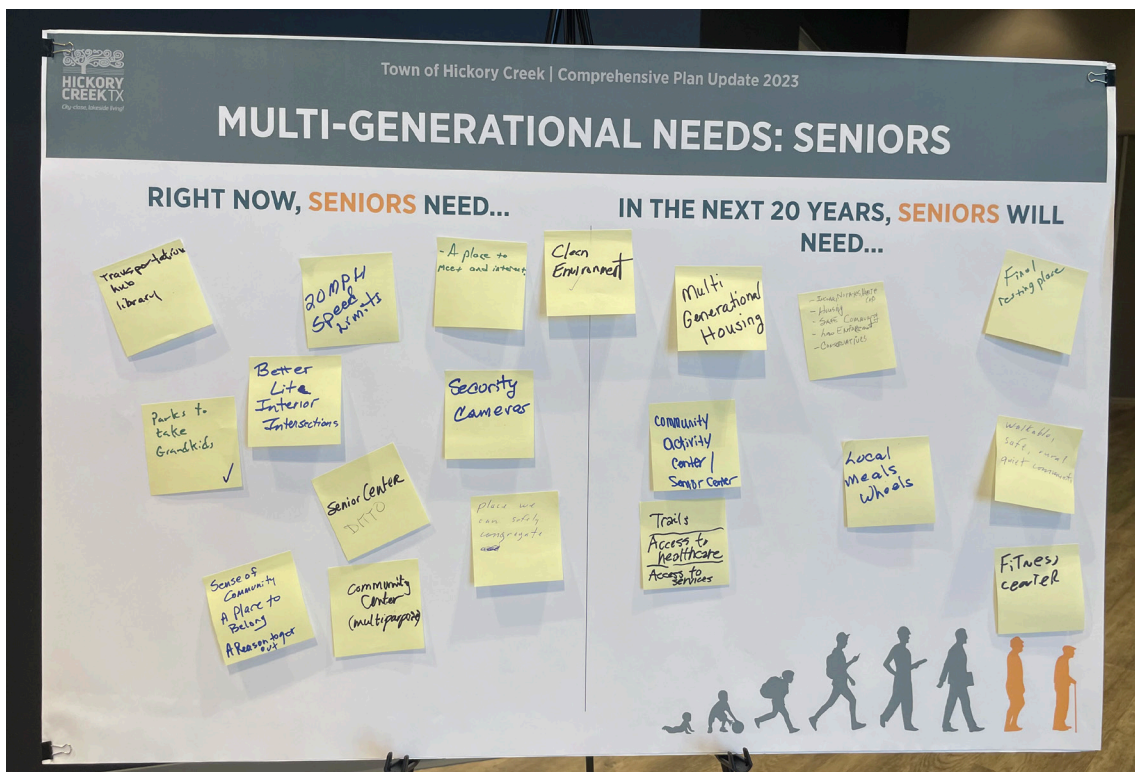 HICKORY
CREEK TX
Town of Hickory Creek | Comprehensive Plan Update 2023
MULTI-GENERATIONAL NEEDS: SENIORS
RIGHT NOW, SENIORS NEED...
Transportation
hub
library
20 MPH
Speed
Limits
- A place to
meet and interact
Clean
Environment
Better
Lite
Interior
Intersections
Security
Cameras
Parks to
take
Grandkids
✓
Senior Center
DITTO
place we
can safely
congregate
Sense of
Community
A Place to
Belong
A Reason to get
out
Community
Center
(multipurpose)
IN THE NEXT 20 YEARS, SENIORS WILL
NEED...
Multi
Generational
Housing
- Housing
- Safe Community
- Law Enforcement
- Conservatives
Final
resting place
Community
Activity
Center/
Senior Center
Local
meals
wheels
walkable,
safe, rural
quiet
Trails
Access to
healthcare
Access to
services
FiTNess
ceNTeR